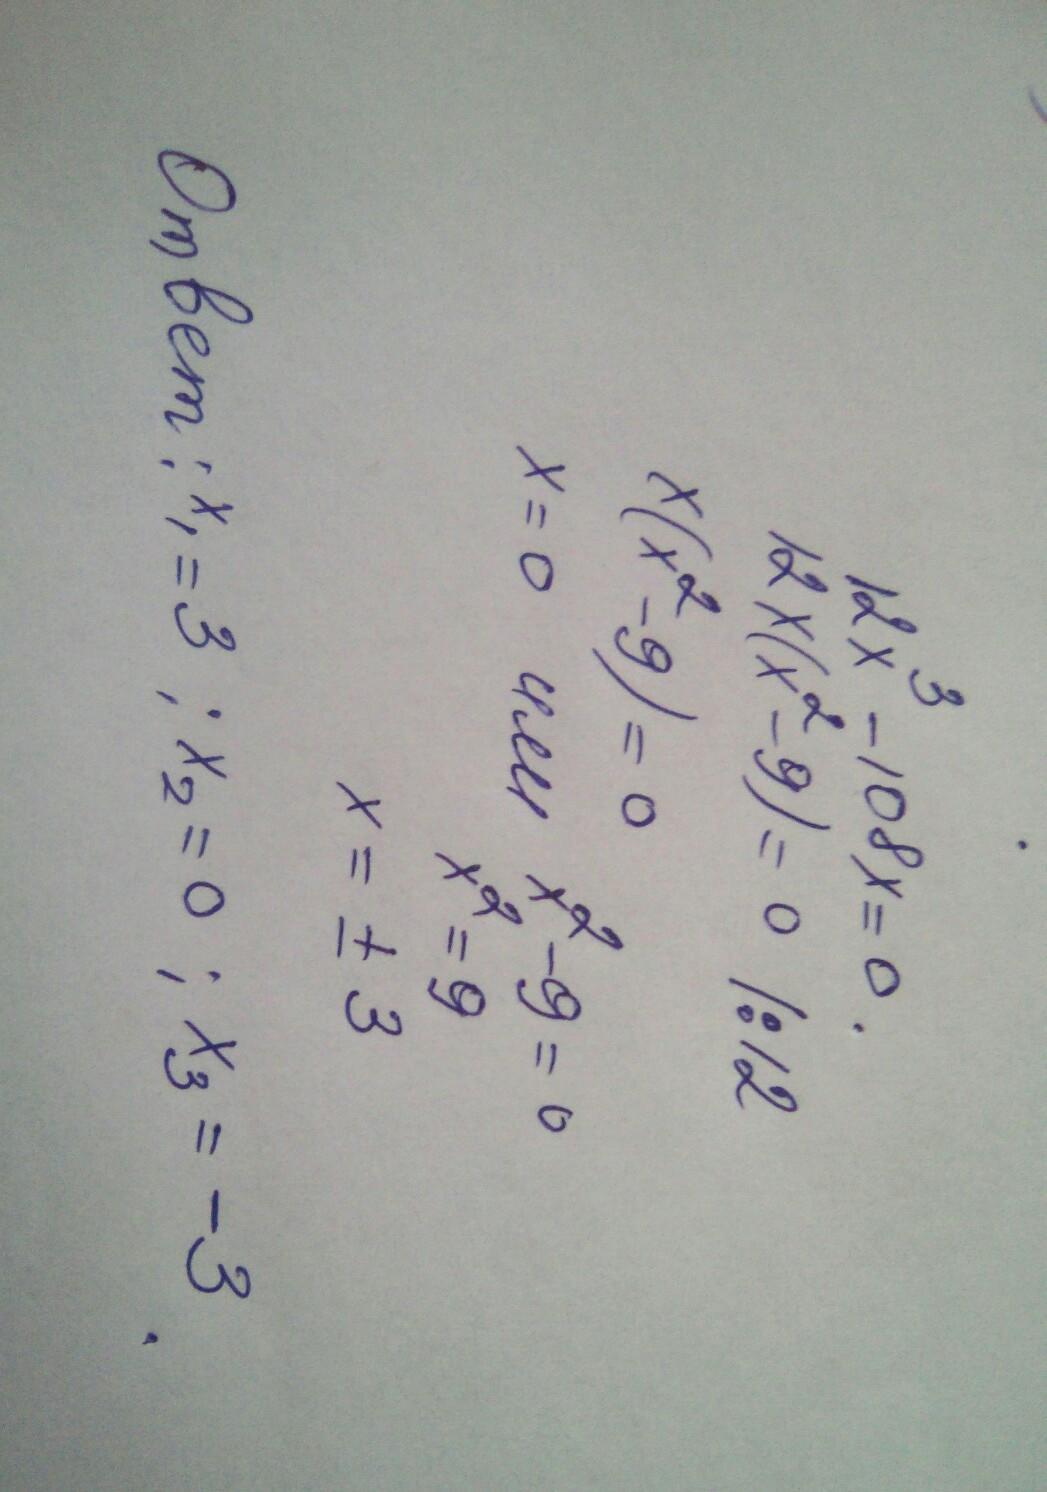 12x³ - 108x = 0.
12x(x² - 9) = 0 |:12
x(x² - 9) = 0
x = 0 или x² - 9 = 0
x² = 9
x = ± 3
Ответ: x₁ = 3; x₂ = 0; x₃ = -3.